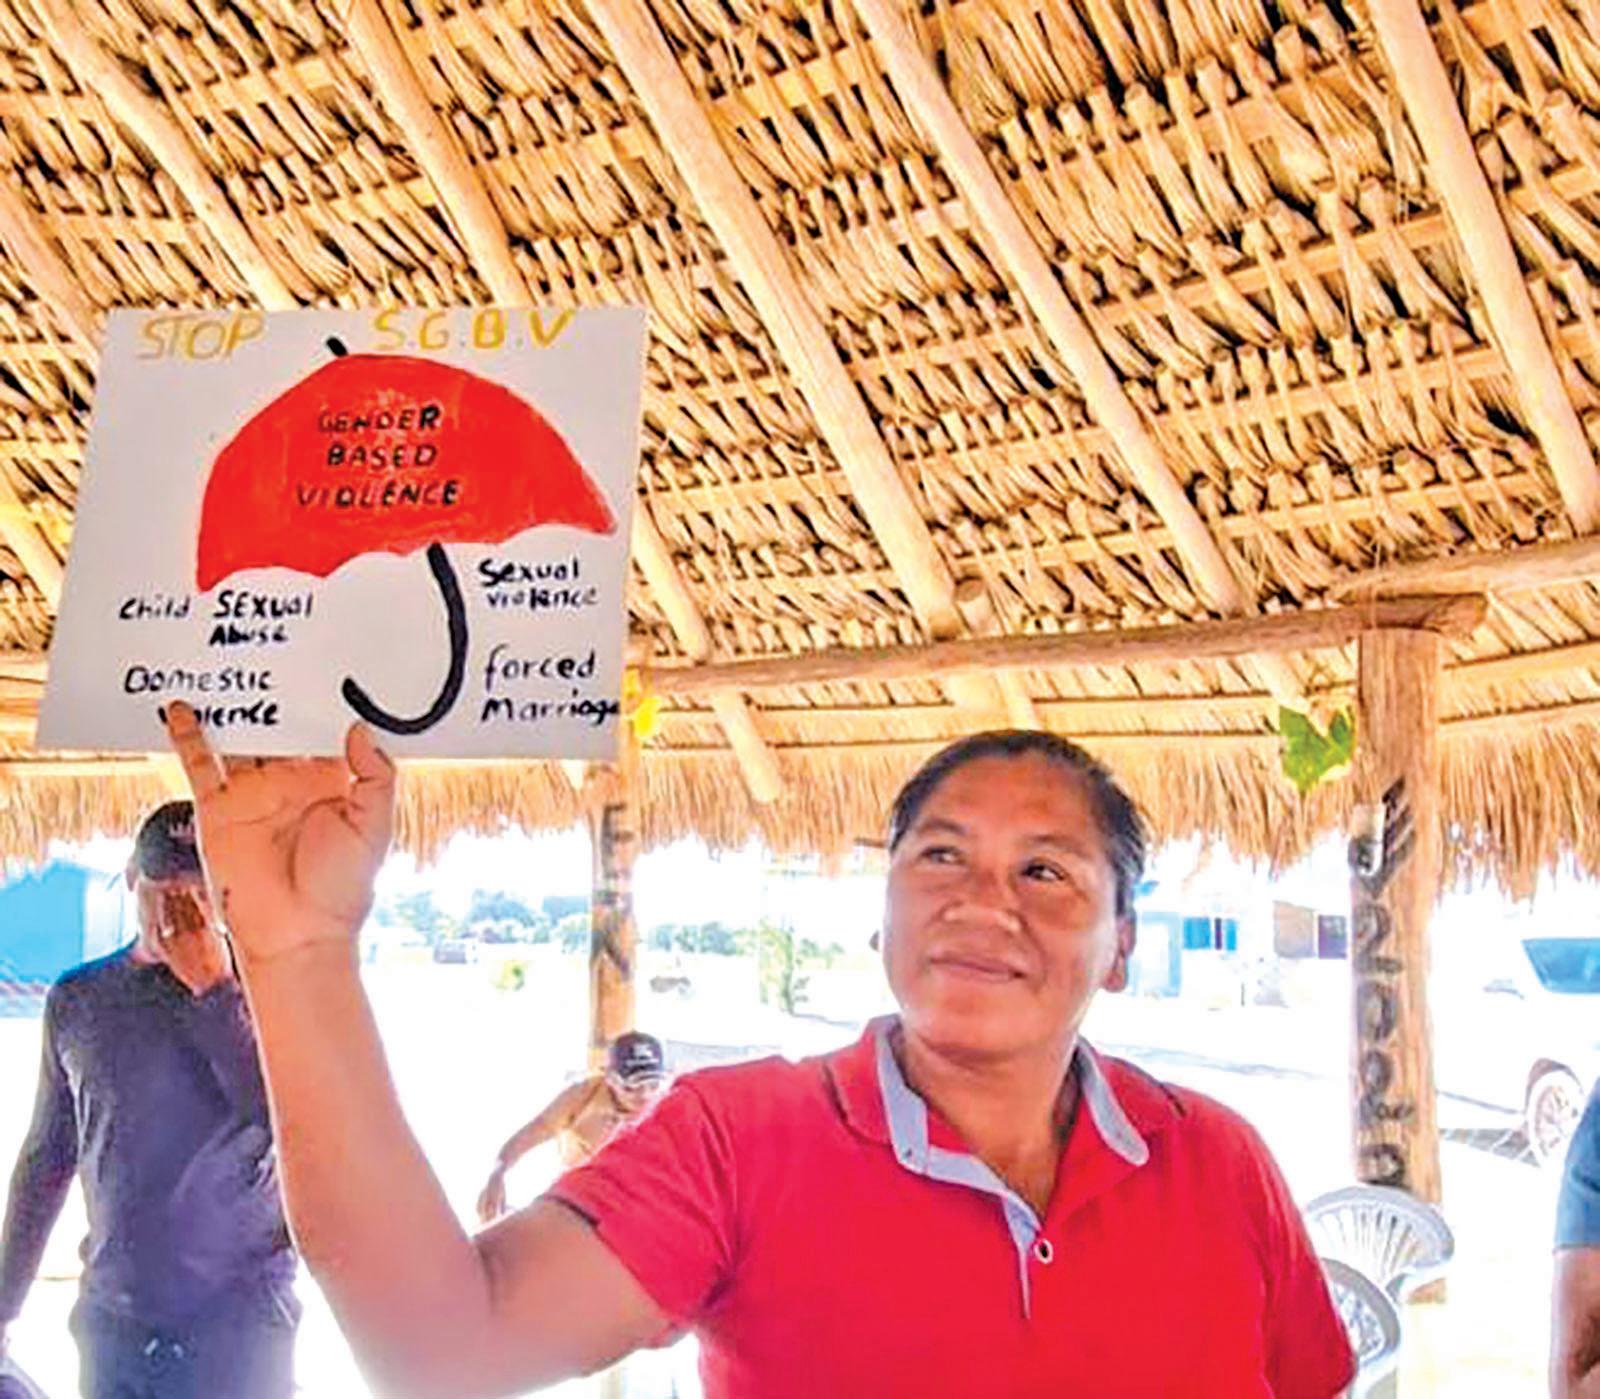 STOP S.G.B.V
GENDER
BASED
VIOLENCE
Child SEXual
Abuse
Sexual
violence
Domestic
violence
forced
Marriage